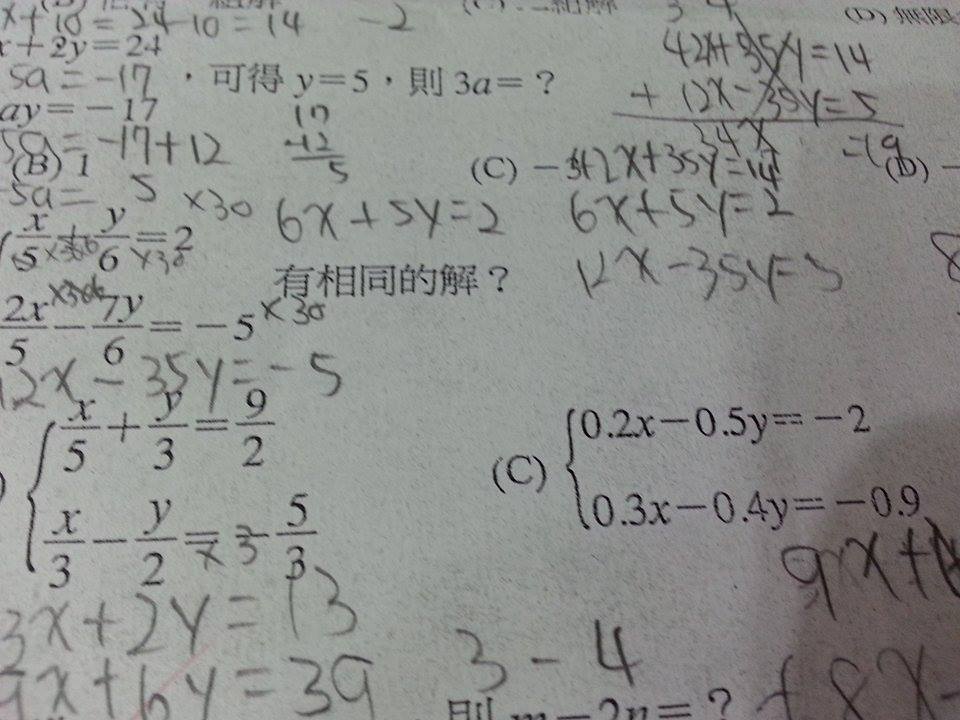 x+10=24-10=14 -2
x+2y=24
5a=-17,可得 y=5,則 3a=?
ay=-17
5a=-17+12
17
-12
5
(B) 1
5a= 5
42x+35y=14
+ 12x-35y=5
34x =19
(C) -
42x+35y=14
(D) -
×30 6x+5y=2 6x+5y=2
x/5+y/6=2
有相同的解? 12x-35y=5
2x/5-7y/6=-5 ×30
12x-35y=-5
x/5+y/3=9/2
x/3-y/2=-5/3
(C) 0.2x-0.5y=-2
0.3x-0.4y=-0.9
3x+2y=13
9x+6y=39
3-4
則 m-2n=?